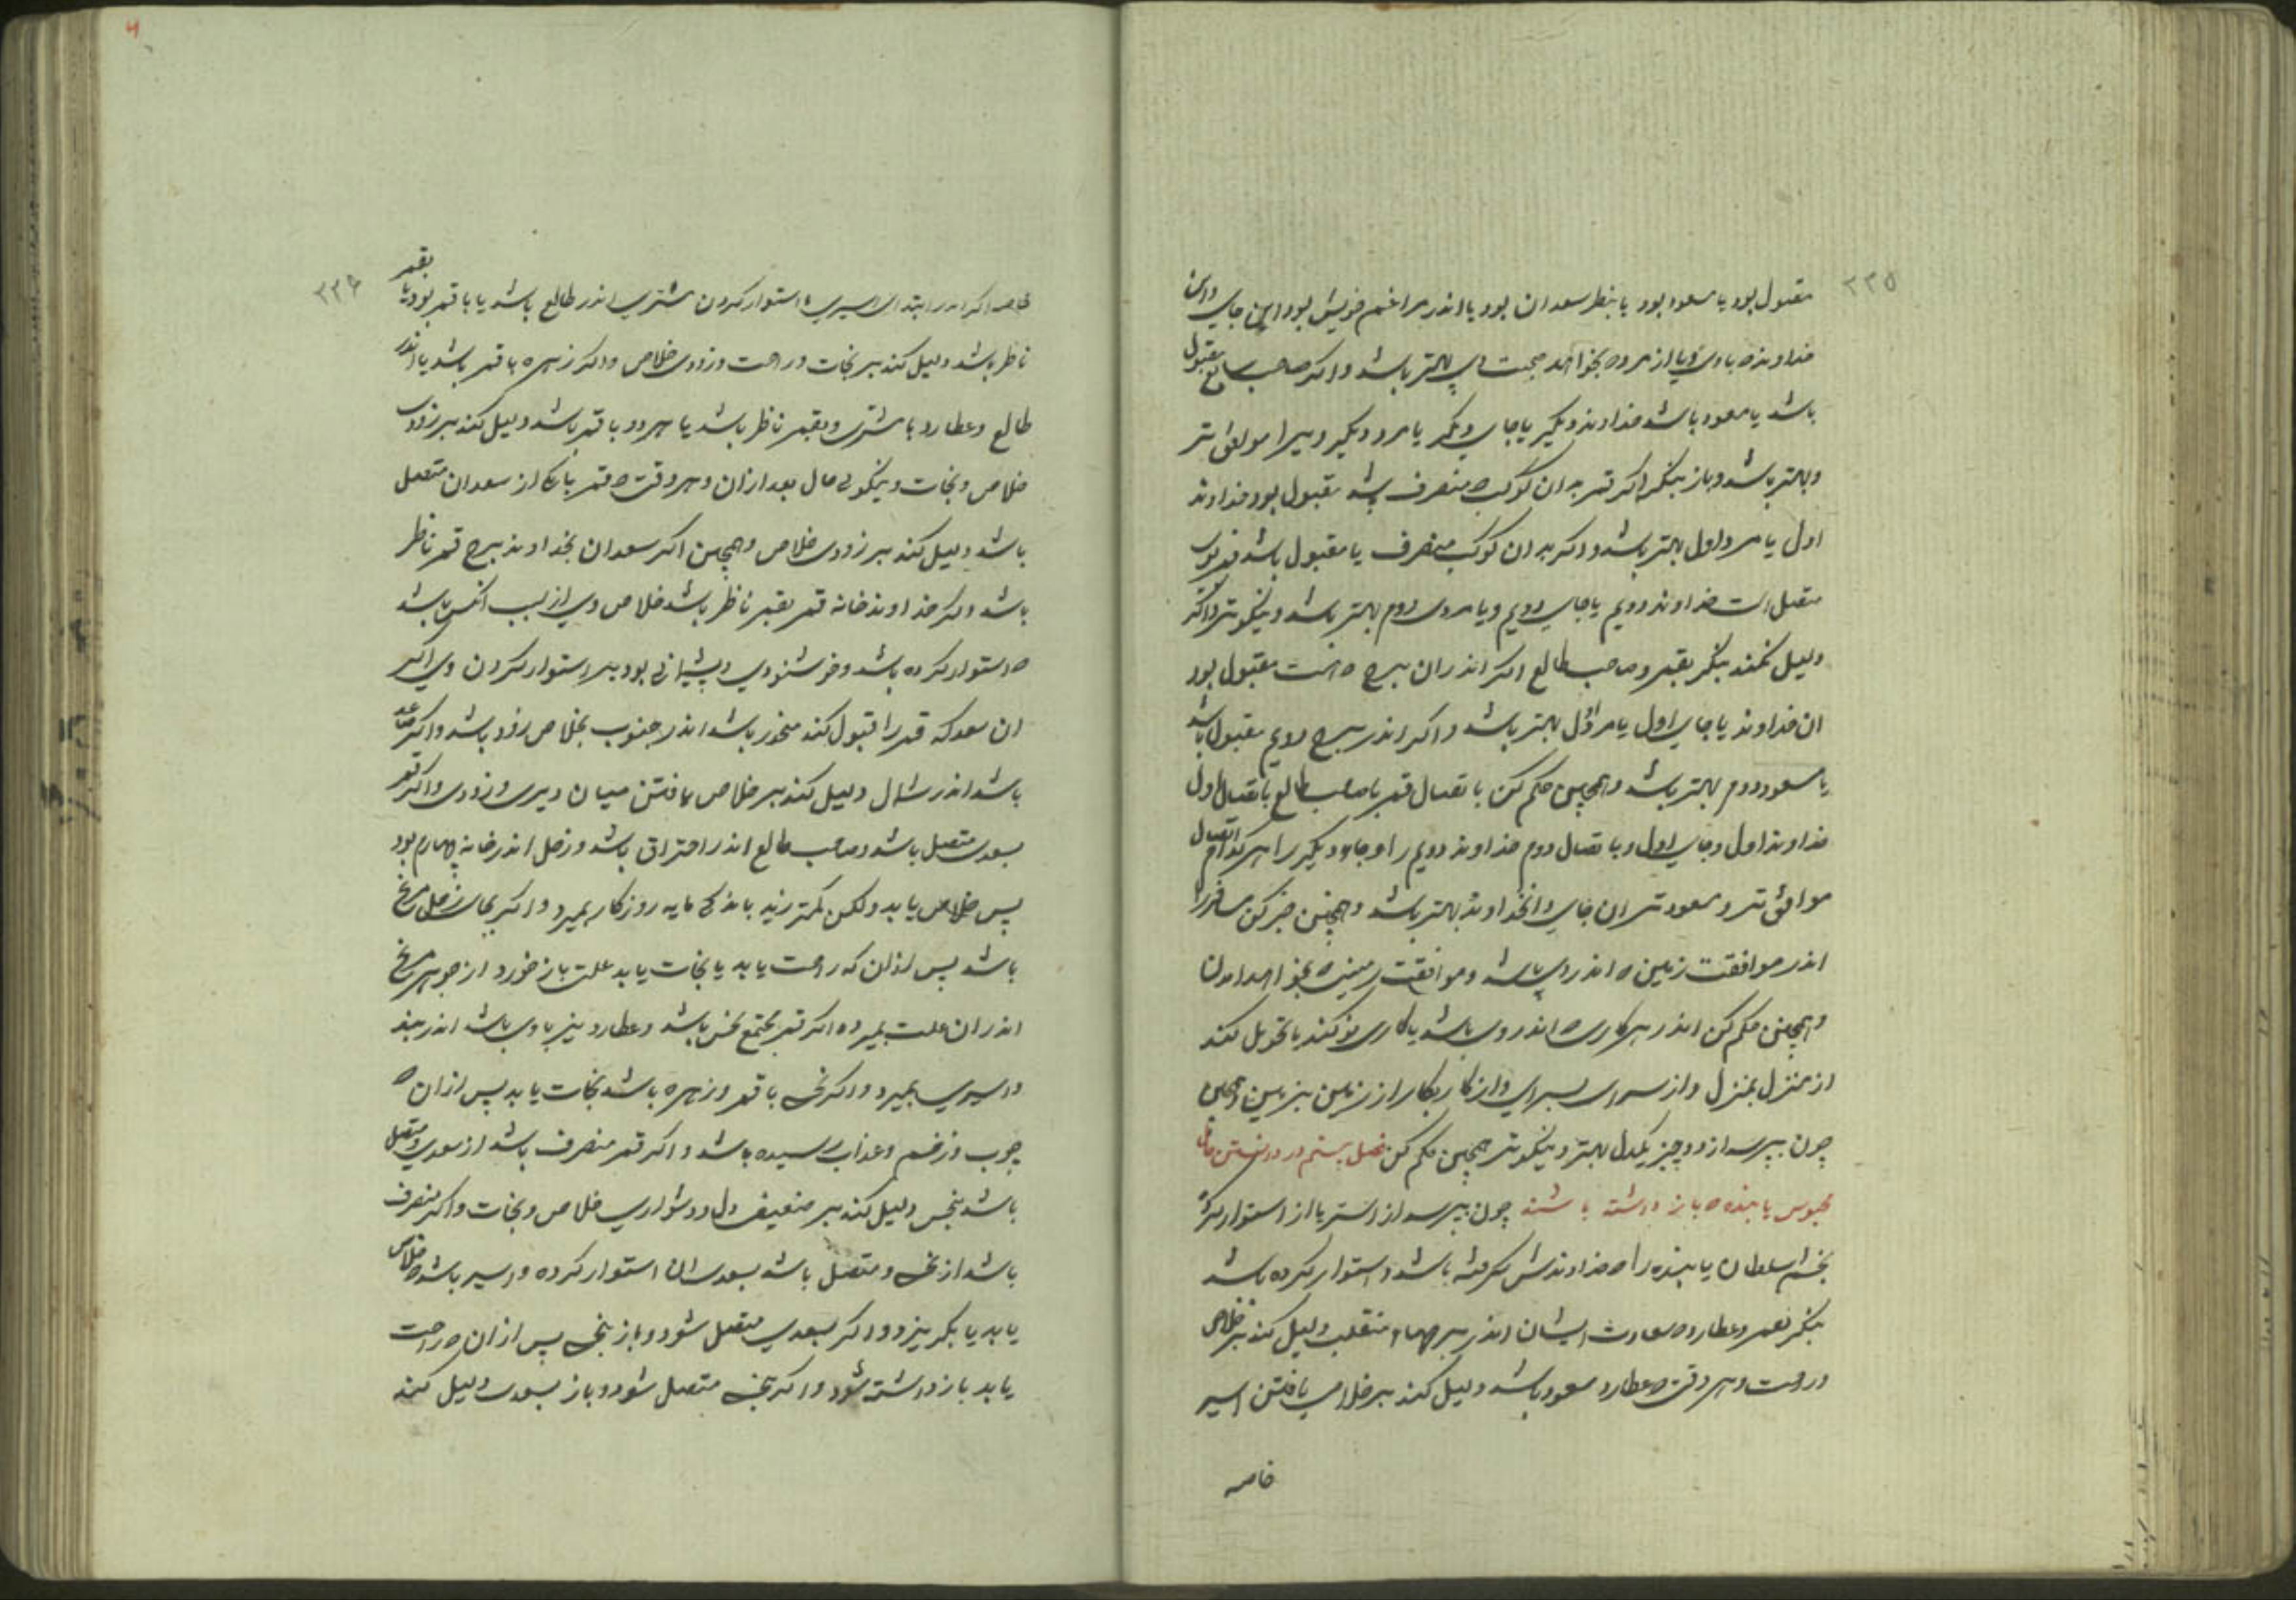 ۲۳۵
مقبول بود یا مسعود بود یا بنظر سعدان بود یا اندر مراغم خویش بود این جای و این
خداوند ه با وی و یا از مرد ه بخواهد صحبت وی بهتر باشد و اکر صاحب سابع مقبول
باشد یا مسعود باشد خداوند دیکر یا جای دیکر یا مرد دیکر ویرا موافق تر
و بهتر باشد و باز بنکر اکر قمر بدان کوکب ه منصرف باشد مقبول بود خداوند
اول یا مرد اول بهتر باشد و اکر بدان کوکب منصرف یا مقبول باشد
متصل است خداوند دویم یا جای دویم و یا مردی دوم بهتر باشد و نیکوتر و اکر
دلیل نکنند بنکر بقمر و صاحب طالع اکر اندران برج ه هست مقبول بود
ان خداوند یا جای اول یا مرد اول بهتر باشد و اکر اندر برج دویم مقبول باشد
یا مسعود دوم بهتر باشد و همچنین حکم کن باتصال قمر با صاحب طالع باتصال اول
خداوند اول و جای اول و باتصال دوم خداوند دویم را و جای دیکر را هر کدام اتصال
موافق تر و مسعودتر ان جای و انخداوند بهتر باشد و همچنین خبر کن مسافر را
اندر موافقت زمین ه اندر وی باشد و موافقت زمین ه بخواهد امدن
و همچنین حکم کن اندر هر کاری ه اندر وی باشد یا کاری نو کند یا تحویل کند
از منزل بمنزل و از سرای بسرای و از کار بکار از زمین بزمین و همچنین
چون بپرسد از دو چیز یکدل بهتر و نیکوتر همچنین حکم کن فصل بیستم در دانستن حال
محبوس یا بنده ه باز داشته باشند چون بپرسد از اسیر یا از استوار کرده
بخشم سلطان یا بنده را ه خداوندش کرفته باشد و استوار کرده باشد
بنکر بقمر و عطارد ه سعادت ایشان اندر برجهاء منقلب دلیل کند بر خلاص
و راحت و هر وقت ه عطارد مسعود باشد دلیل کند بر خلاص یافتن اسیر
خاصه
۲۳۶
خاصه اکر اندر ابتداء اسیری یا استوار کردن مشتری اندر طالع باشد یا با قمر بود یا بقمر
ناظر باشد دلیل کند بر نجات و راحت و زودی خلاص و اکر زهره با قمر باشد یا اندر
طالع و عطارد با مشتری و بقمر ناظر باشد یا هر دو با قمر باشد دلیل کند بر زودی
خلاص و نجات و نیکوئی حال بعد از ان و هر وقت ه قمر بیکی از سعدان متصل
باشد دلیل کند بر زودی خلاص و همچنین اکر سعدان بخداوند برج قمر ناظر
باشد و اکر خداوند خانه قمر بقمر ناظر باشد خلاص وی از سبب انکس باشد
ه استوار کرده باشد و خوشنودی و پشیمانی بود بر استوار کردن وی اکر
ان سعد که قمر را قبول کند منحدر باشد اندر جنوب بخلاص زود باشد و اکر صاعد
باشد اندر شمال دلیل کند بر خلاص یافتن میان دیری و زودی و اکر قمر
بسعدی متصل باشد و صاحب طالع اندر احتراق باشد و زحل اندر خانه چهارم بود
پس خلاص یابد ولکن کمتر زید باندکی مایه روزکار بمیرد و اکر بجای زحل مریخ
باشد پس از ان که راحت یابد یا نجات یابد علت باز خورد از جوهر مریخ
اندر ان علت بمیرد ه اکر قمر مجتمع نحس باشد و عطارد نیز با وی باشد اندر بند
و اسیری بمیرد و اکر نحس با قمر و زهره باشد نجات یابد پس از ان ه
چوب و زخم و عذاب رسیده باشد و اکر قمر منصرف باشد از سعدی و متصل
باشد بنحس دلیل کند بر ضعیف دل و دشواری خلاص و نجات و اکر منصرف
باشد از نحس و متصل باشد بسعدی ان استوار کرده و اسیر باشد ه خلاص
یابد یا بکریزد و اکر بسعدی متصل شود و باز بنحس پس از ان ه راحت
یابد باز داشته شود و اکر بنحس متصل شود و باز بسعدی دلیل کند